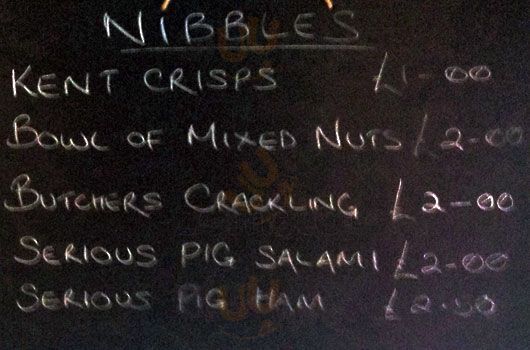 NIBBLES
KENT CRISPS £1-00
BOWL OF MIXED NUTS £2-00
BUTCHERS CRACKLING £2-00
SERIOUS PIG SALAMI £2-00
SERIOUS PIG HAM £2.50